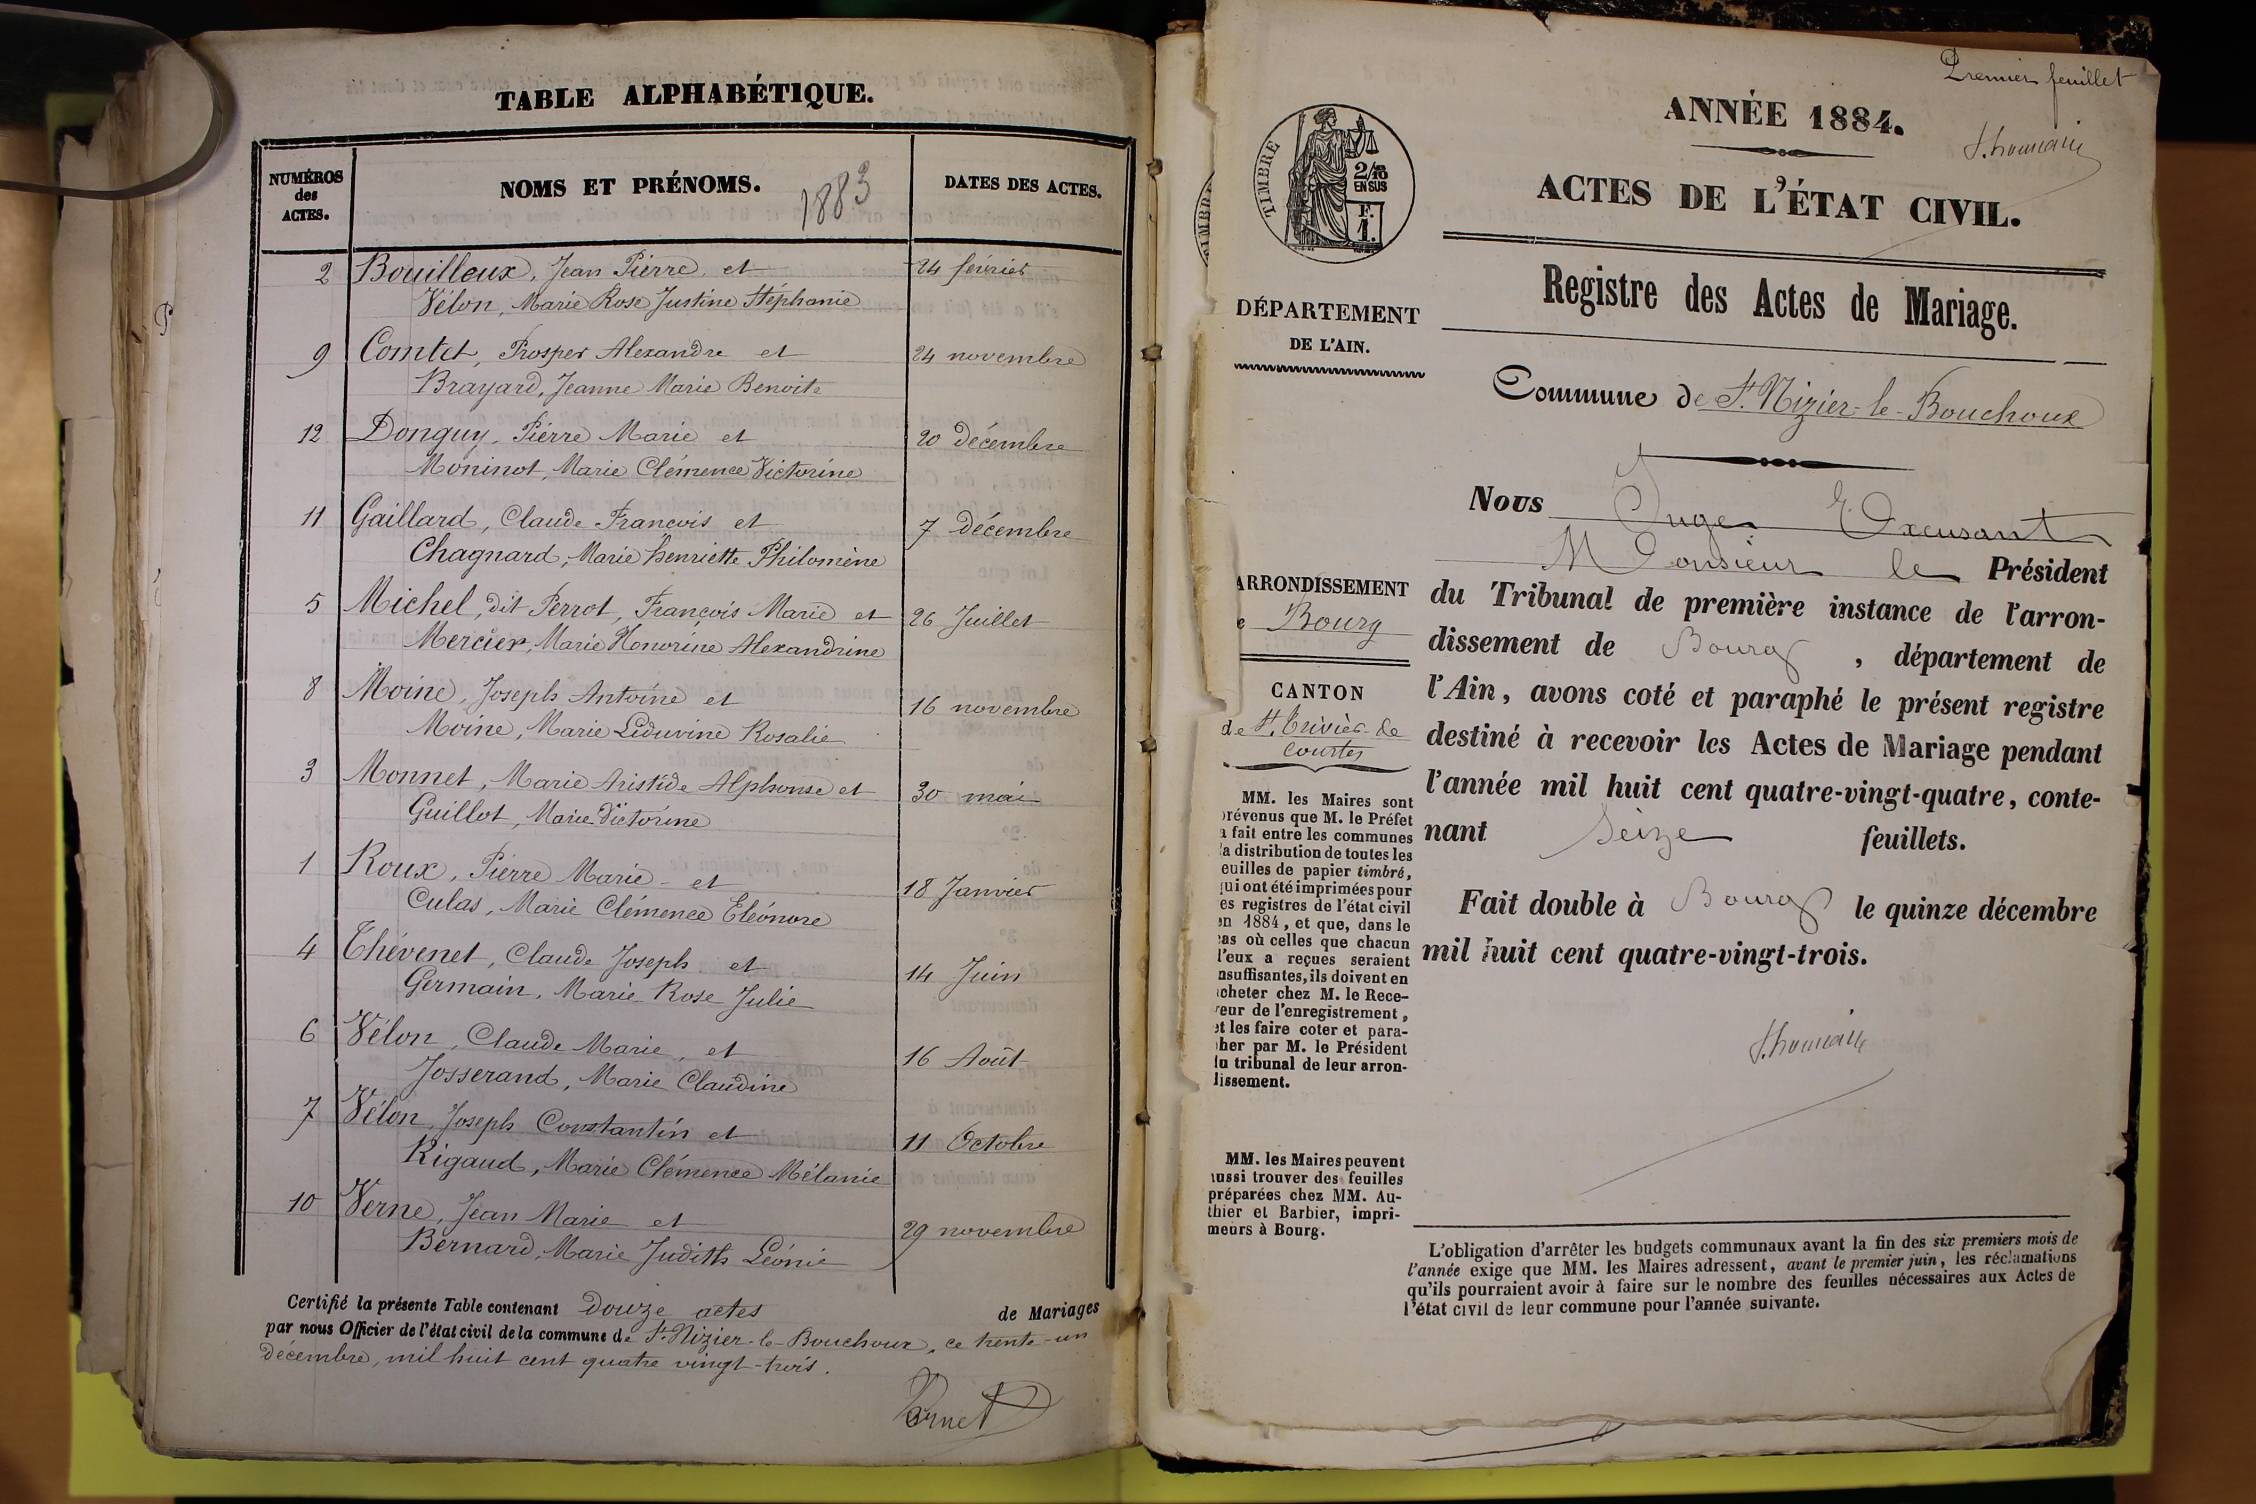 TABLE ALPHABÉTIQUE.
NUMÉROS
des
ACTES.
NOMS ET PRÉNOMS.
1883
DATES DES ACTES.
2 Bouilloux, Jean Pierre et 24 février
Vélon, Marie Rose Justine Stéphanie
9 Comtet, Prosper Alexandre et 24 novembre
Brayard, Jeanne Marie Benoite
12 Donguy, Pierre Marie et 20 décembre
Moninot, Marie Clémence Victorine
11 Gaillard, Claude François et 7 décembre
Chagnard, Marie henriette Philomène
5 Michel, dit Perrot, François Marie et 26 Juillet
Mercier, Marie Honorine Alexandrine
8 Moine, Joseph Antoine et 16 novembre
Moine, Marie Liduvine Rosalie
3 Monnet, Marie Aristide Alphonse et 30 mai
Guillot, Marie Victorine
1 Roux, Pierre Marie et 18 Janvier
Culas, Marie Clémence Eléonore
4 Thévenet, Claude Joseph et 14 Juin
Germain, Marie Rose Julie
6 Vélon, Claude Marie, et 16 Août
Josserand, Marie Claudine
7 Vélon, Joseph Constantin et 11 Octobre
Rigaud, Marie Clémence Mélanie
10 Verne, Jean Marie et 29 novembre
Bernard, Marie Judith Léonie
Certifié la présente Table contenant douze actes de Mariages
par nous Officier de l'état civil de la commune de St. Nizier-le-Bouchoux, ce trente-un
décembre, mil huit cent quatre vingt-trois.
Premier feuillet
ANNÉE 1884.
TIMBRE
2/10
EN SUS
F.
1.
ACTES DE L'ÉTAT CIVIL.
Registre des Actes de Mariage.
DÉPARTEMENT
DE L'AIN.
Commune de St. Nizier-le-Bouchoux
Nous Juge Excusant
Monsieur le Président
du Tribunal de première instance de l'arron-
dissement de Bourg, département de
l'Ain, avons coté et paraphé le présent registre
destiné à recevoir les Actes de Mariage pendant
l'année mil huit cent quatre-vingt-quatre, conte-
nant Seize feuillets.
Fait double à Bourg le quinze décembre
mil huit cent quatre-vingt-trois.
ARRONDISSEMENT
e Bourg
CANTON
de St. Trivier-de
Courtes
MM. les Maires sont
révenus que M. le Préfet
a fait entre les communes
la distribution de toutes les
euilles de papier timbré,
ui ont été imprimées pour
es registres de l'état civil
en 1884, et que, dans le
cas où celles que chacun
d'eux a reçues seraient
nsuffisantes, ils doivent en
cheter chez M. le Rece-
veur de l'enregistrement,
et les faire coter et para-
pher par M. le Président
du tribunal de leur arron-
dissement.
MM. les Maires peuvent
aussi trouver des feuilles
préparées chez MM. Au-
thier et Barbier, impri-
meurs à Bourg.
L'obligation d'arrêter les budgets communaux avant la fin des six premiers mois de
l'année exige que MM. les Maires adressent, avant le premier juin, les réclamations
qu'ils pourraient avoir à faire sur le nombre des feuilles nécessaires aux Actes de
l'état civil de leur commune pour l'année suivante.